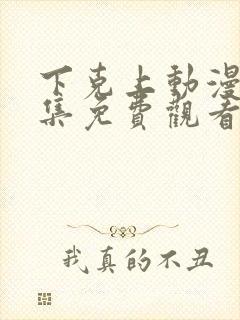 下克上動漫
集免費觀看
我真的不丑